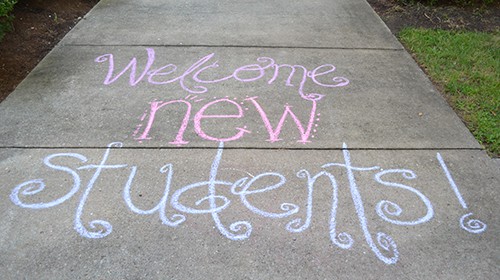 Welcome
new
students!